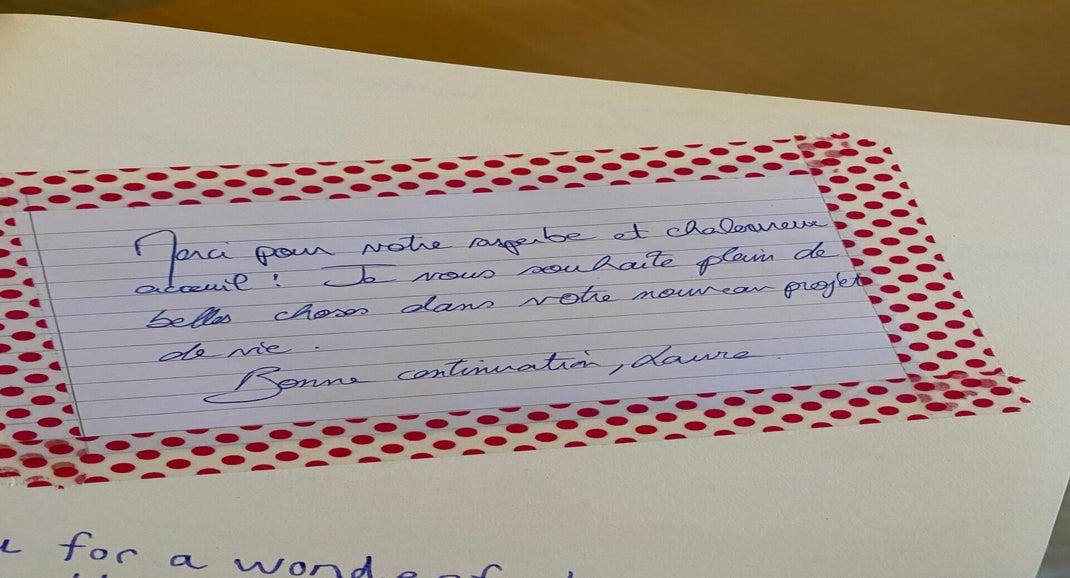 Merci pour votre superbe et chaleureux
accueil ! Je vous souhaite plein de
belles choses dans votre nouveau projet
de vie.
Bonne continuation, Laure.
for a wonderful